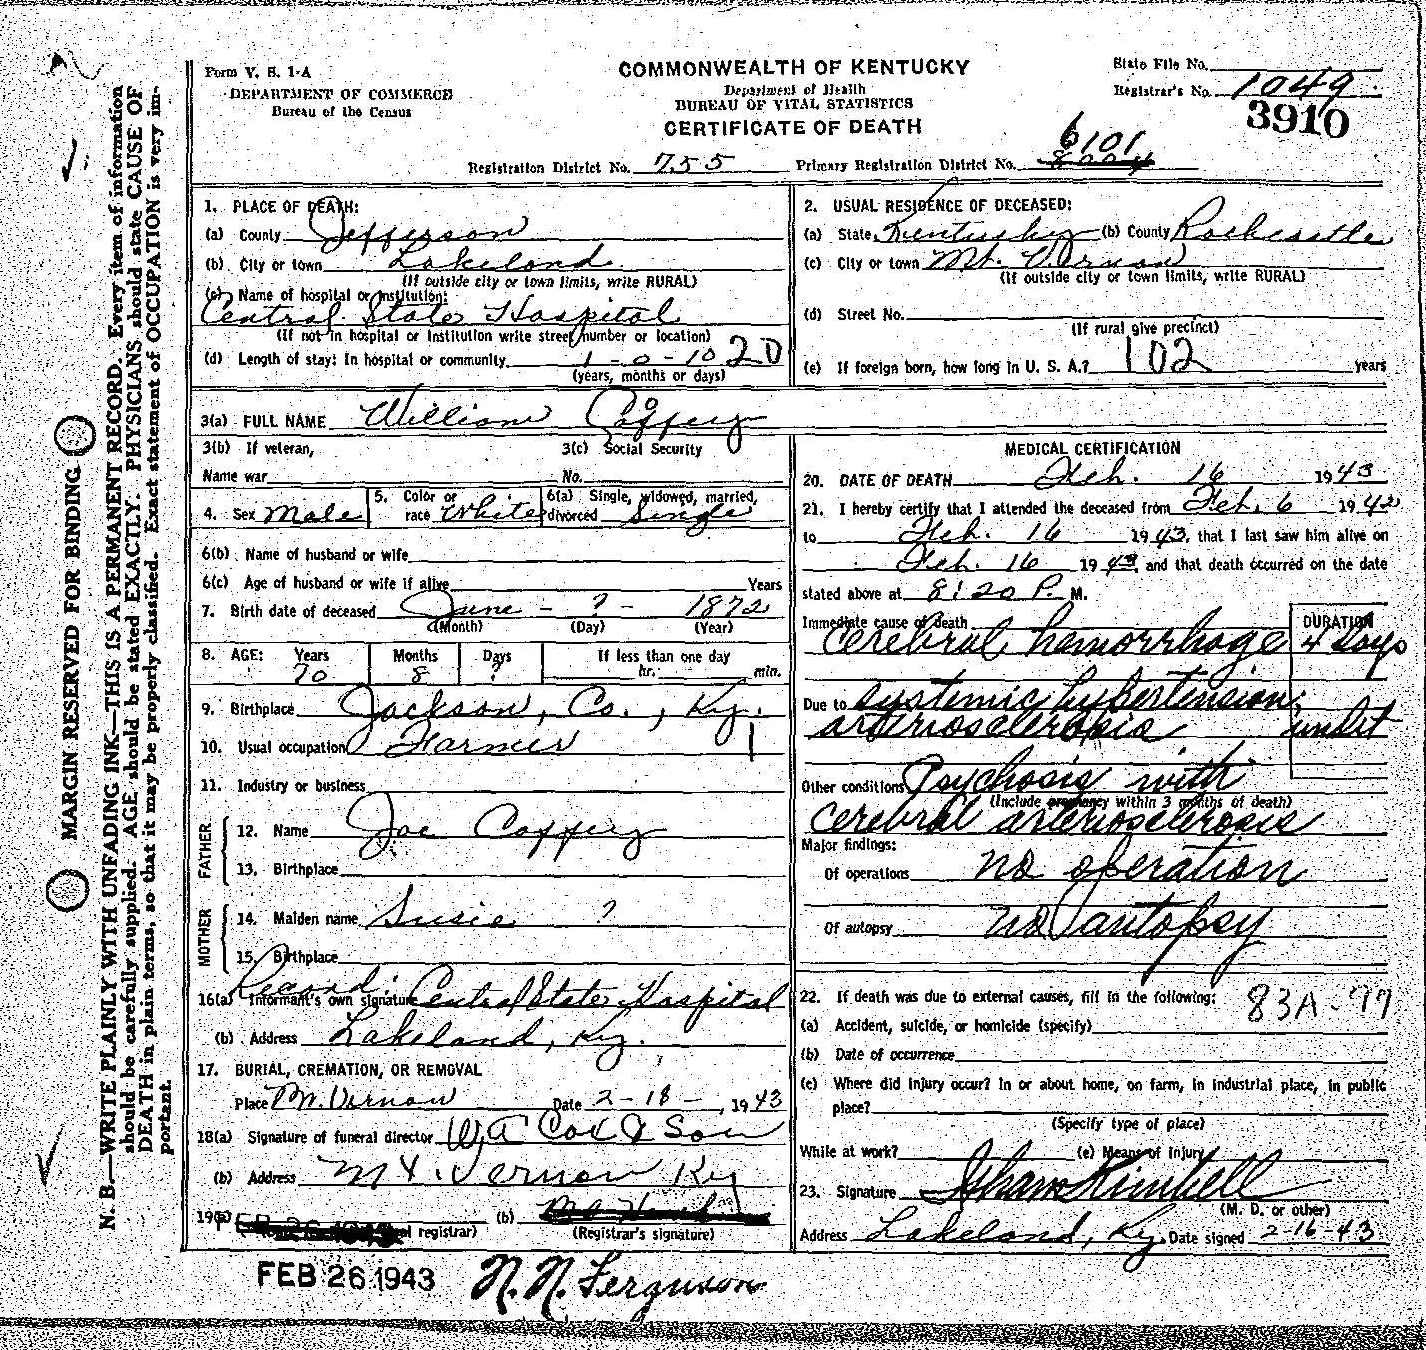 Form V. S. 1-A
DEPARTMENT OF COMMERCE
Bureau of the Census
COMMONWEALTH OF KENTUCKY
Department of Health
BUREAU OF VITAL STATISTICS
CERTIFICATE OF DEATH
State File No.
Registrar's No. 1049
3910
Registration District No. 755
Primary Registration District No. 6101
MARGIN RESERVED FOR BINDING
N. B.—WRITE PLAINLY WITH UNFADING INK—THIS IS A PERMANENT RECORD. Every item of information
should be carefully supplied. AGE should be stated EXACTLY. PHYSICIANS should state CAUSE OF
DEATH in plain terms, so that it may be properly classified. Exact statement of OCCUPATION is very im-
portant.
1. PLACE OF DEATH:
(a) County Jefferson
(b) City or town Lakeland
(If outside city or town limits, write RURAL)
(c) Name of hospital or institution:
Central State Hospital
(If not in hospital or institution write street number or location)
(d) Length of stay: In hospital or community 1-0-10 20
(years, months or days)
2. USUAL RESIDENCE OF DECEASED:
(a) State Kentucky (b) County Rockcastle
(c) City or town Mt. Vernon
(If outside city or town limits, write RURAL)
(d) Street No.
(If rural give precinct)
(e) If foreign born, how long in U. S. A.? 102 years
3(a) FULL NAME William Coffey
3(b) If veteran,
Name war
3(c) Social Security
No.
4. Sex Male
5. Color or
race White
6(a) Single, widowed, married,
divorced Single
6(b) Name of husband or wife
6(c) Age of husband or wife if alive Years
7. Birth date of deceased June - ? - 1872
(Month) (Day) (Year)
8. AGE: Years Months Days If less than one day
70 8 ? hr. min.
9. Birthplace Jackson, Co., Ky.
10. Usual occupation Farmer 1
11. Industry or business
FATHER
12. Name Joe Coffey
13. Birthplace
MOTHER
14. Maiden name Susie ?
15. Birthplace
Record:
16(a) Informant's own signature Central State Hospital
(b) Address Lakeland, Ky.
17. BURIAL, CREMATION, OR REMOVAL
Place Mt. Vernon Date 2-18-, 1943
18(a) Signature of funeral director W A Cox & Son
(b) Address Mt. Vernon Ky
19(a) (b)
registrar) (Registrar's signature)
FEB 26 1943 N. N. Ferguson
MEDICAL CERTIFICATION
20. DATE OF DEATH Feb. 16 1943
21. I hereby certify that I attended the deceased from Feb. 6 1942
to Feb. 16 1943, that I last saw him alive on
Feb. 16 1943, and that death occurred on the date
stated above at 8:20 P. M.
Immediate cause of death DURATION
cerebral hemorrhage 4 days
Due to systemic hypertension,
arteriosclerosis undet
Other conditions Psychosis with
(Include pregnancy within 3 months of death)
cerebral arteriosclerosis
Major findings:
Of operations no operation
Of autopsy no autopsy
22. If death was due to external causes, fill in the following: 83A-97
(a) Accident, suicide, or homicide (specify)
(b) Date of occurrence
(c) Where did injury occur? In or about home, on farm, in industrial place, in public
place?
(Specify type of place)
While at work? (e) Means of Injury
23. Signature Isham Kimbell
(M. D. or other)
Address Lakeland, Ky. Date signed 2-16-43